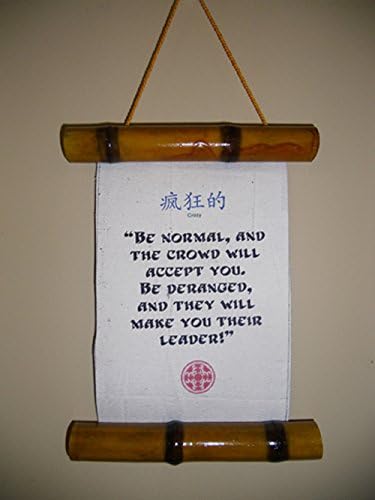 疯狂的
Crazy
“Be normal, and
the crowd will
accept you.
Be deranged,
and they will
make you their
leader!”